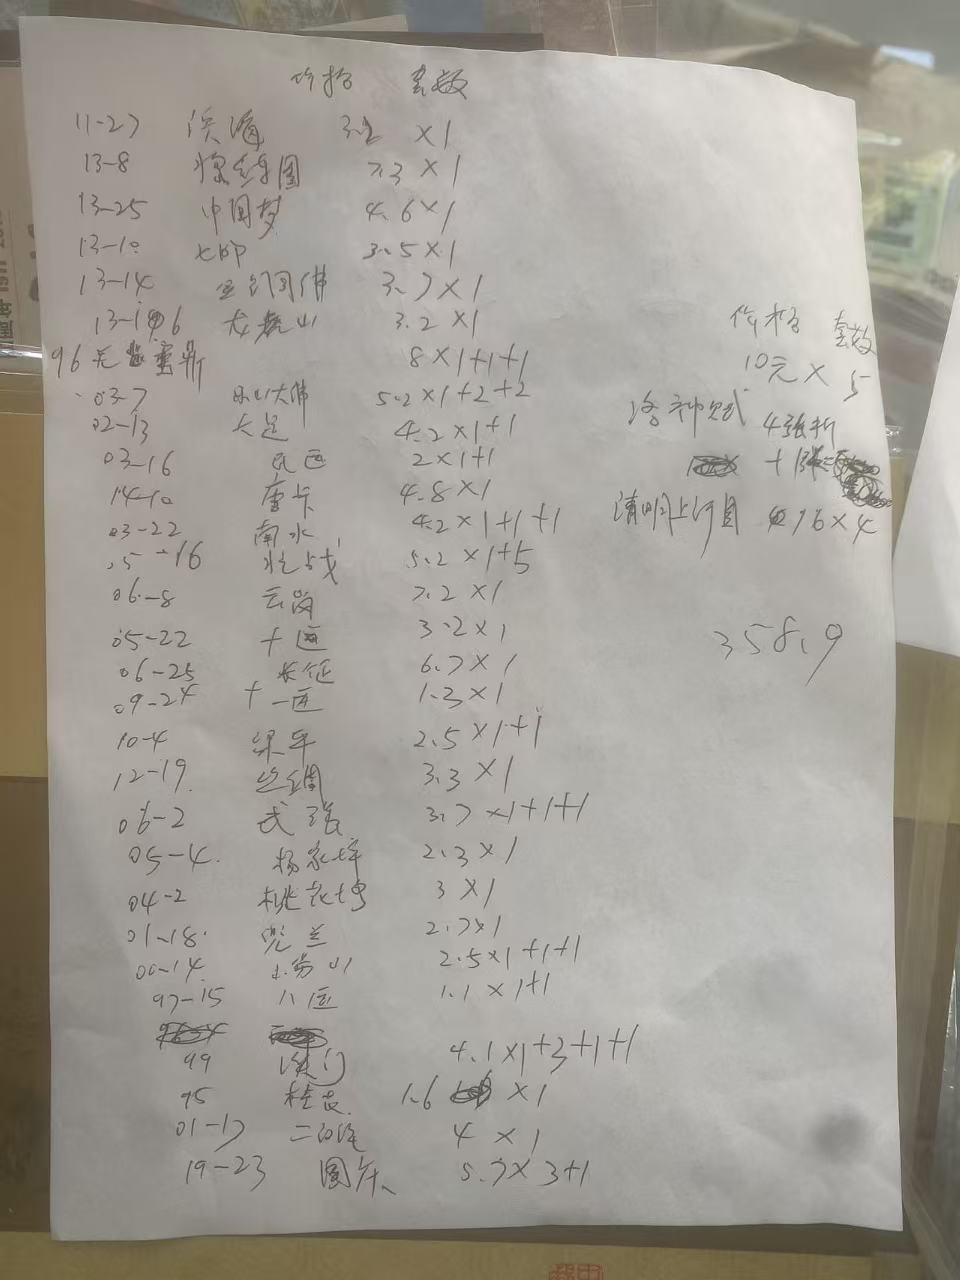 价格 套数
11-27 3.2 ×1
13-8 7.3 ×1
13-25 中国梦 4.6×1
13-10 3.5×1
13-14 金铜佛 3.7×1
13-16 龙虎山 3.2×1
96 无 重新 8×1+1+1
03-7 乐山大佛 5.2×1+2+2
02-13 大足 4.2×1+1
03-16 2×1+1
14-10 唐卡 4.8×1
03-22 南水 4.2×1+1+1
05-16 抗战 5.2×1+5
06-8 云岗 7.2×1
05-22 十运 3.2×1
06-25 长征 6.7×1
09-24 十一运 1.3×1
10-4 梁平 2.5×1+1
12-19 丝绸 3.3×1
06-2 武强 3.7×1+1+1
05-4 杨家埠 2.3×1
04-2 桃花坞 3×1
01-18 兜兰 2.7×1
00-14 崂山 2.5×1+1+1
97-15 八运 1.1×1+1
99 澳门 4.1×1+3+1+1
95 桂花 1.6 ×1
01-17 二 4×1
19-23 国庆 5.7×3+1
价格 套数
10元× 5
洛神赋 4张折
+
清明上河图 16×4
358.9